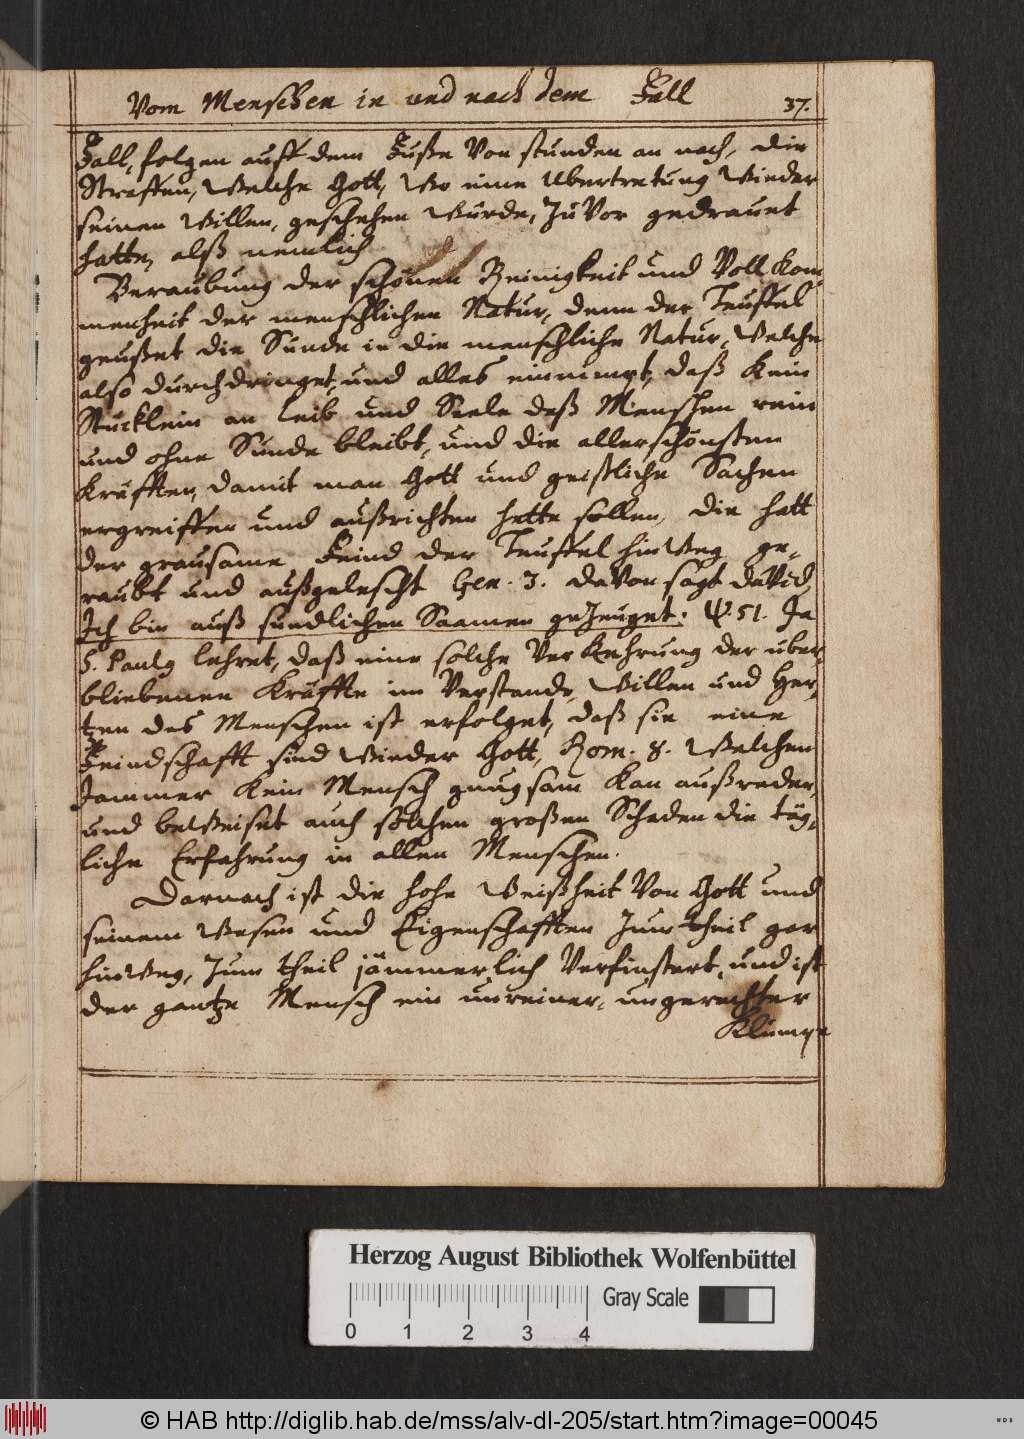 Vom Menschen in und nach dem Fall
37.
Fall, folgen auff dem Fuße von stunden an nach, die
Straffen, welche Gott, wo eine Ubertretung wieder
seinen willen, geschehen würde, zuvor gedrauet
hatte, alß nemlich
Beraubung der schönen Reinigkeit und Vollkom-
menheit der menschlichen Natur, denn der Teuffel
geußet die Sünde in die menschliche Natur, welche
also durchdringet, und alles einnimpt, daß kein
Stücklein an Leib und Seele deß Menschen rein
und ohne Sünde bleibt, und die allerschönsten
Kräfften, damit man Gott und geistliche Sachen
ergreiffen und außrichten hette sollen, die hatt
der grausame Feind der Teuffel hinweg ge-
raubt und außgelescht Gen. 3. davon sagt David,
Ich bin auß sündlichen Saamen gezeuget. Ψ. 51. Ja
S. Paulg lehret, daß eine solche Verkehrung der über-
bliebenen Kräffte im Verstande, willen und Her-
tzen des Menschen ist erfolget, daß sie eine
Feindschafft sind wieder Gott, Rom. 8. welchen
Jammer kein Mensch gnugsam kan außreden,
und beweiset auch solchen großen Schaden die täg-
liche Erfahrung in allen Menschen.
Darnach ist die hohe weißheit von Gott und
seinem wesen und Eigenschafften zum theil gar
hinweg, zum theil jämmerlich verfinstert, und ist
der gantze Mensch ein unreiner, ungerechter
Klumpe
Herzog August Bibliothek Wolfenbüttel
Gray Scale
0 1 2 3 4
© HAB http://diglib.hab.de/mss/alv-dl-205/start.htm?image=00045
WDB